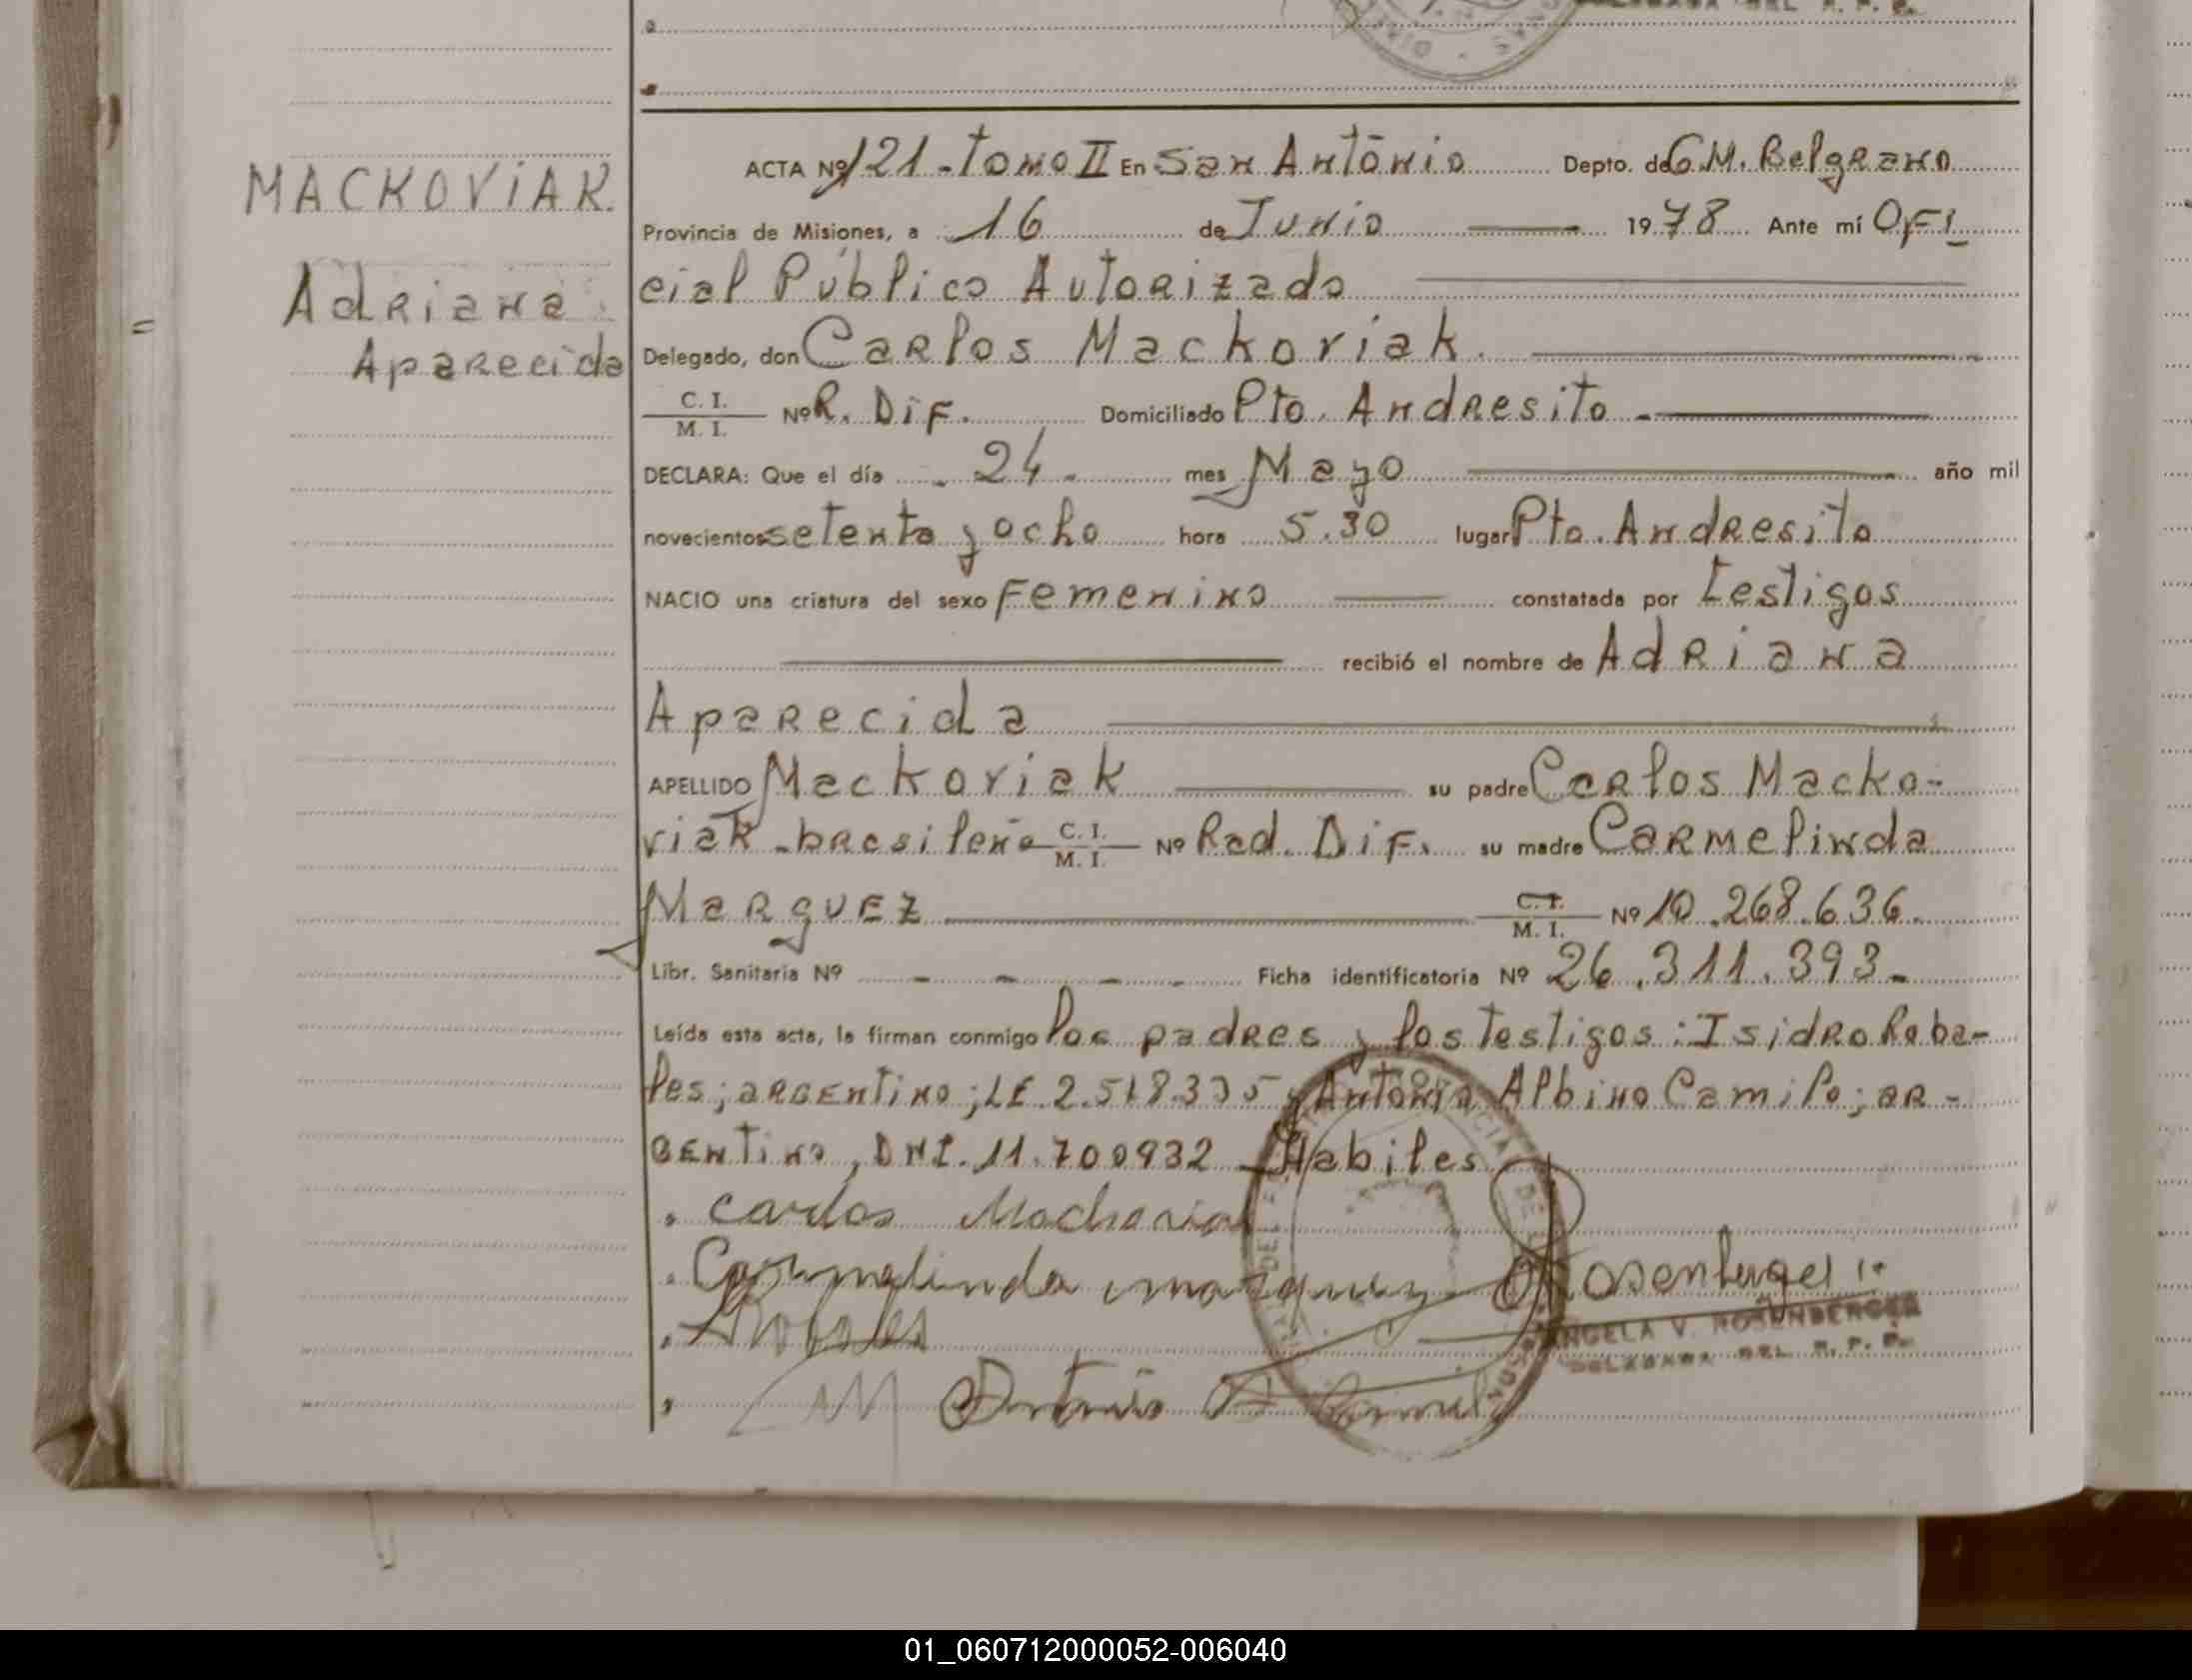 DELEGADA DEL R. P. P.
MACKOVIAK.
Adriana
Aparecida
ACTA Nº 121 - Tomo II En San António Depto. de G M. Belgrano
Provincia de Misiones, a 16 de Junio 1978 Ante mí OFi
cial Público Autorizado
Delegado, don Carlos Mackoviak.
C. I. / M. I. Nº R. DiF. Domiciliado Pto. Andresito -
DECLARA: Que el día 24 mes Mayo año mil
novecientos setenta y ocho hora 5.30 lugar Pto. Andresito
NACIO una criatura del sexo Femenino constatada por testigos
recibió el nombre de Adriana
Aparecida
APELLIDO Mackoviak su padre Carlos Macko-
viak - brasileño C. I. / M. I. Nº Rad. DiF. su madre Carmelinda
Marquez C. I. / M. I. Nº 10.268.636.
Libr. Sanitaria Nº - - - - Ficha identificatoria Nº 26.311.393-
Leída esta acta, la firman conmigo los padres y los testigos: Isidro
les; argentino; LE. 2.518.335 y Antonio Albino Camilo; ar-
gentino, DNI. 11.700932 - Habiles
Carlos
Carmelinda marquez
Antonio A
ANGELA V. ROSENBERGER
DELEGADA DEL R. P. P.
01_060712000052-006040